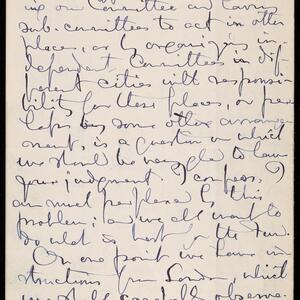 ing our Committee and having
sub-committees to act in other
places, or by organizing in-
dependent Committees in dif-
ferent cities with responsi-
bility for these places, or per-
haps by some other arrange-
ment, is a question on which
we should be very glad to have
your judgment. I confess, I
am much perplexed by this
problem; and we all want to
do what is best for the Fund.
On one point we have in-
structions from London, which
we should carefully observe.